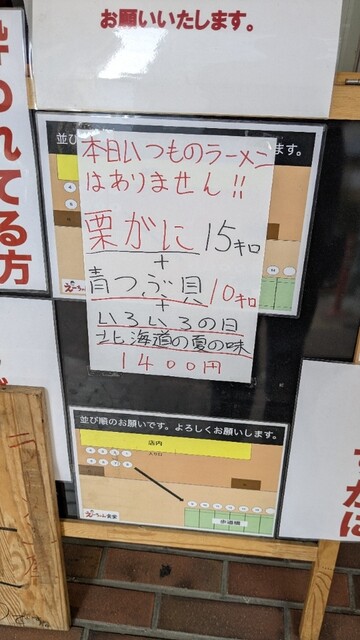 お願いいたします。
われてる方
並び
ます。
本日いつものラーメン
はありません!!
栗がに 15キロ
+
青つぶ貝 10キロ
+
いろいろの日
北海道の夏の味
1400円
並び順のお願いです。よろしくお願いします。
店内
歩道橋